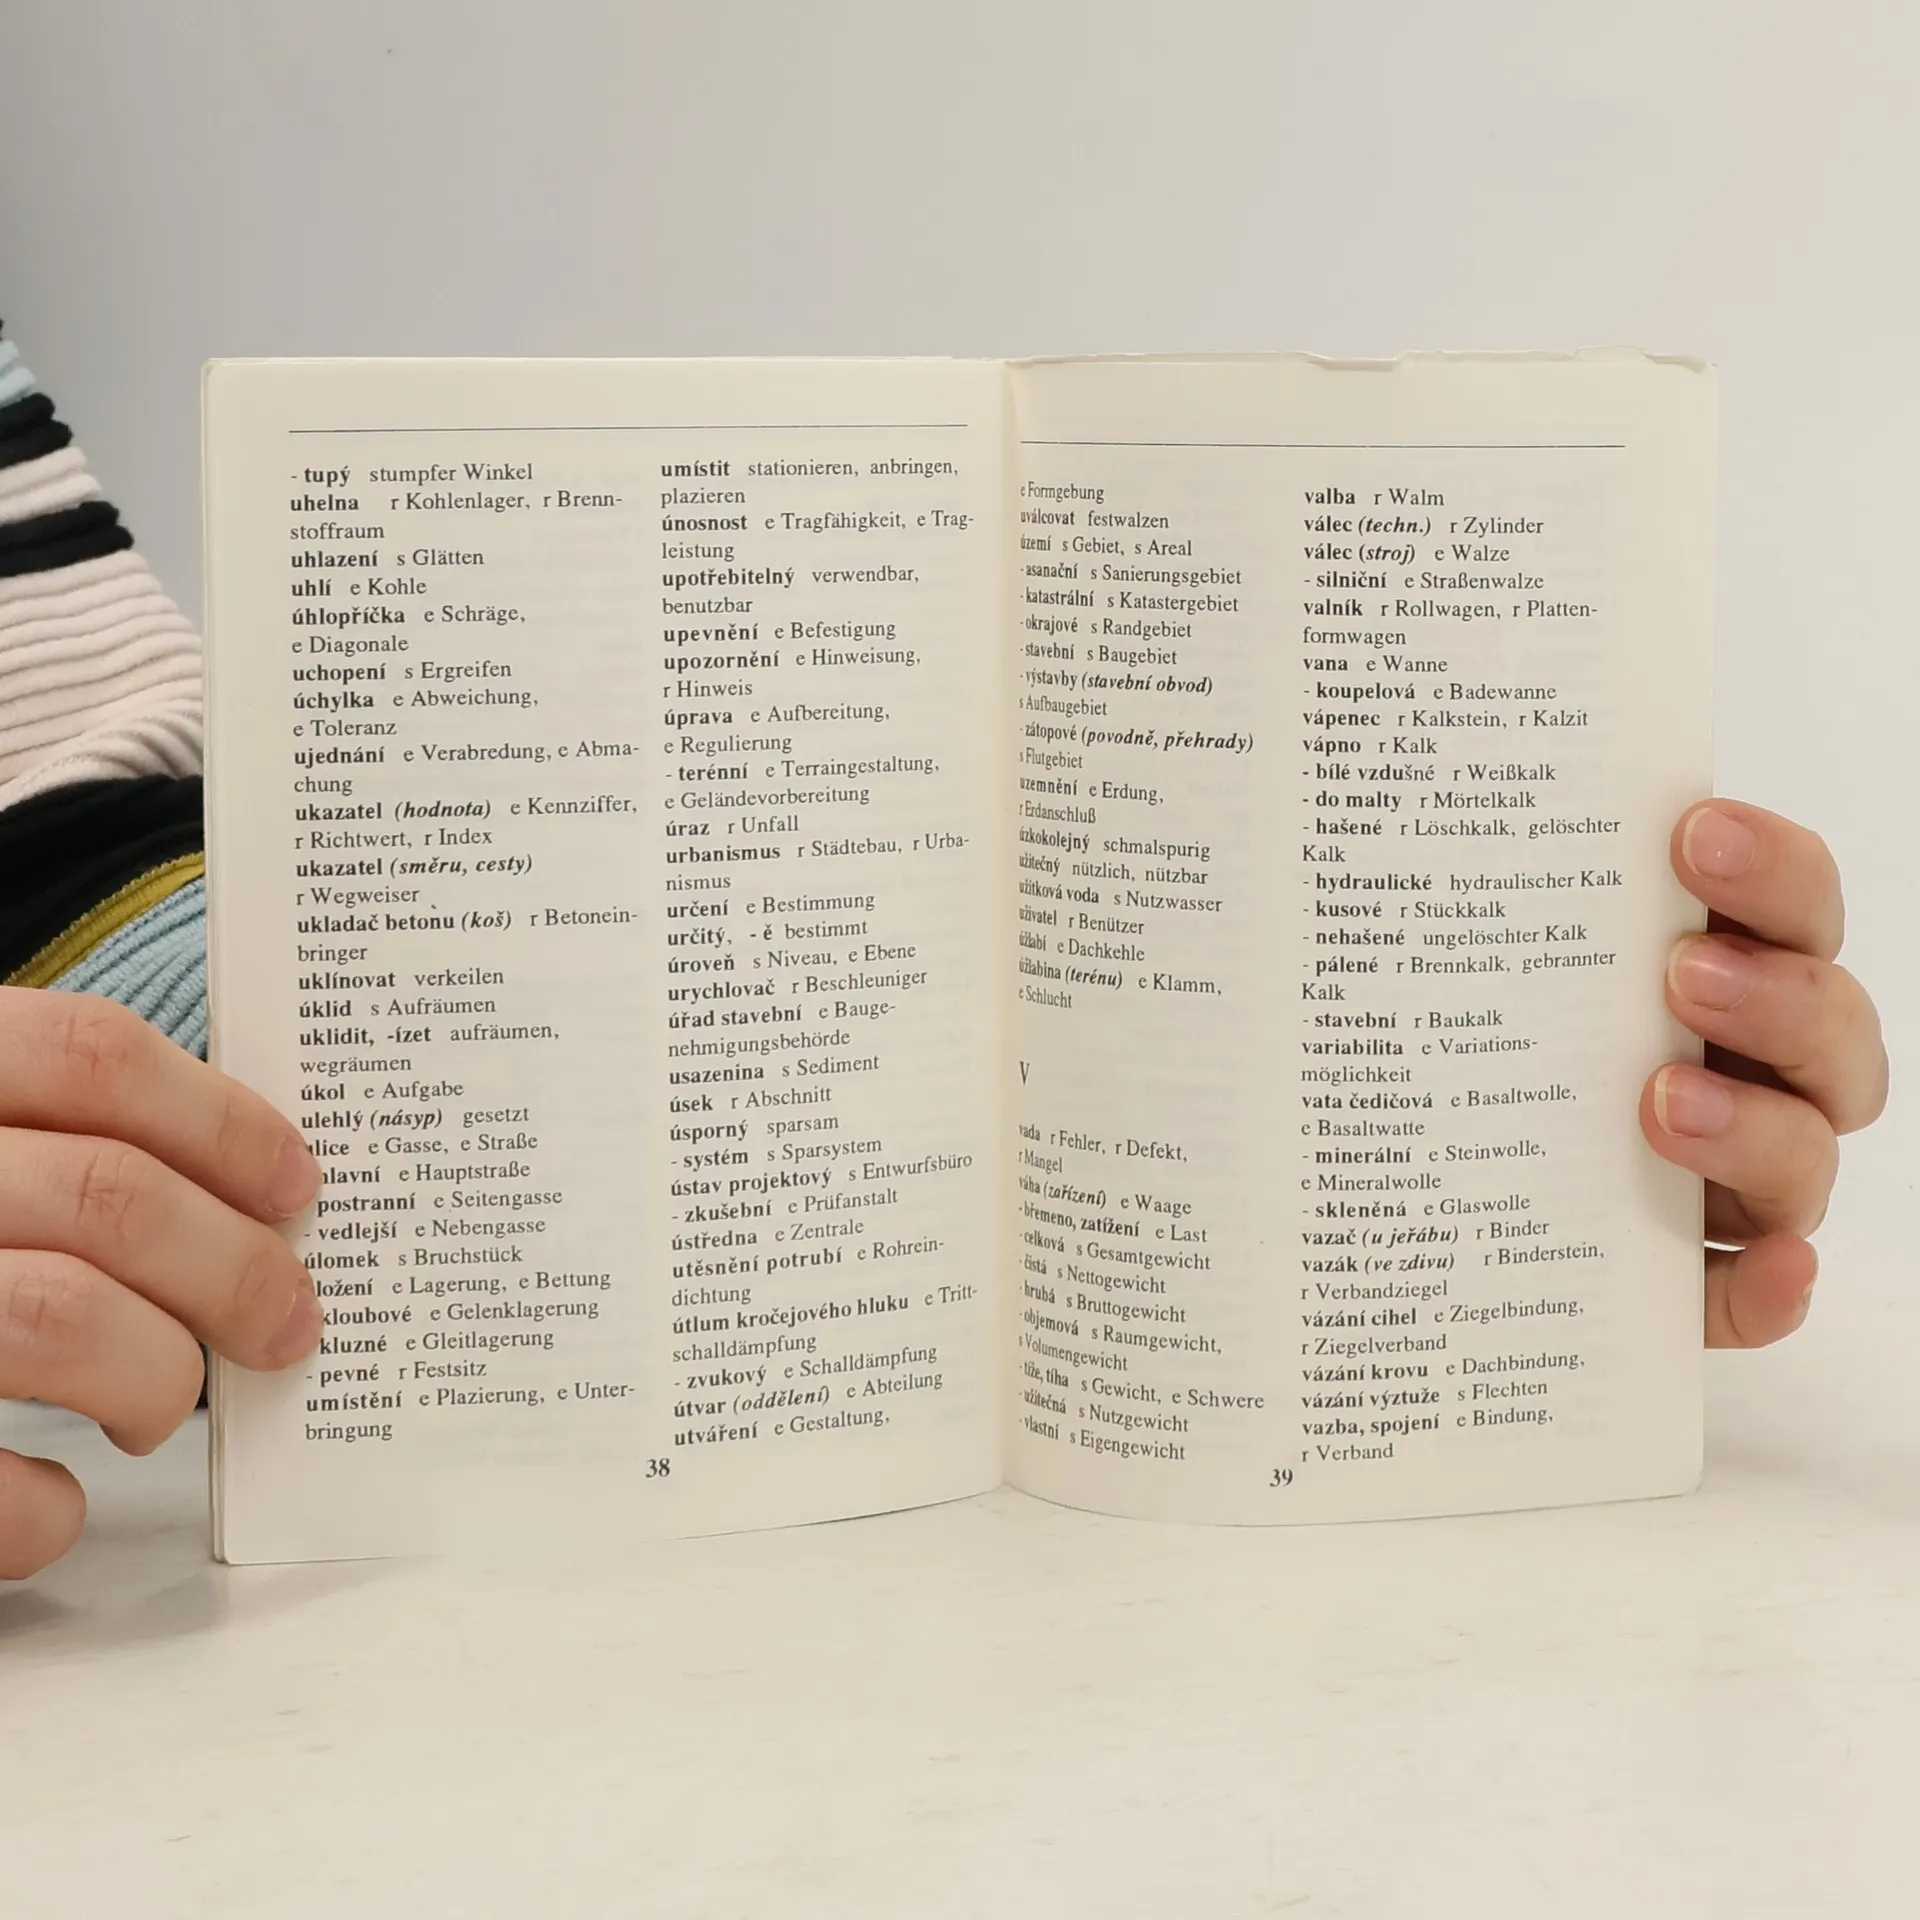 - tupý stumpfer Winkel
uhelna r Kohlenlager, r Brenn-
stoffraum
uhlazení s Glätten
uhlí e Kohle
úhlopříčka e Schräge,
e Diagonale
uchopení s Ergreifen
úchylka e Abweichung,
e Toleranz
ujednání e Verabredung, e Abma-
chung
ukazatel (hodnota) e Kennziffer,
r Richtwert, r Index
ukazatel (směru, cesty)
r Wegweiser
ukladač betonu (koš) r Betonein-
bringer
uklínovat verkeilen
úklid s Aufräumen
uklidit, -ízet aufräumen,
wegräumen
úkol e Aufgabe
ulehlý (násyp) gesetzt
ulice e Gasse, e Straße
hlavní e Hauptstraße
postranní e Seitengasse
- vedlejší e Nebengasse
úlomek s Bruchstück
uložení e Lagerung, e Bettung
kloubové e Gelenklagerung
kluzné e Gleitlagerung
- pevné r Festsitz
umístění e Plazierung, e Unter-
bringung
umístit stationieren, anbringen,
plazieren
únosnost e Tragfähigkeit, e Trag-
leistung
upotřebitelný verwendbar,
benutzbar
upevnění e Befestigung
upozornění e Hinweisung,
r Hinweis
úprava e Aufbereitung,
e Regulierung
- terénní e Terraingestaltung,
e Geländevorbereitung
úraz r Unfall
urbanismus r Städtebau, r Urba-
nismus
určení e Bestimmung
určitý, - ě bestimmt
úroveň s Niveau, e Ebene
urychlovač r Beschleuniger
úřad stavební e Bauge-
nehmigungsbehörde
usazenina s Sediment
úsek r Abschnitt
úsporný sparsam
- systém s Sparsystem
ústav projektový s Entwurfsbüro
- zkušební e Prüfanstalt
ústředna e Zentrale
utěsnění potrubí e Rohrein-
dichtung
útlum kročejového hluku e Tritt-
schalldämpfung
- zvukový e Schalldämpfung
útvar (oddělení) e Abteilung
utváření e Gestaltung,
38
e Formgebung
uválcovat festwalzen
území s Gebiet, s Areal
- asanační s Sanierungsgebiet
- katastrální s Katastergebiet
- okrajové s Randgebiet
- stavební s Baugebiet
- výstavby (stavební obvod)
s Aufbaugebiet
- zátopové (povodně, přehrady)
s Flutgebiet
uzemnění e Erdung,
r Erdanschluß
úzkokolejný schmalspurig
užitečný nützlich, nützbar
užitková voda s Nutzwasser
uživatel r Benützer
úžlabí e Dachkehle
úžlabina (terénu) e Klamm,
e Schlucht
V
vada r Fehler, r Defekt,
r Mangel
váha (zařízení) e Waage
- břemeno, zatížení e Last
- celková s Gesamtgewicht
- čistá s Nettogewicht
- hrubá s Bruttogewicht
- objemová s Raumgewicht,
s Volumengewicht
- tíže, tíha s Gewicht, e Schwere
- užitečná s Nutzgewicht
- vlastní s Eigengewicht
valba r Walm
válec (techn.) r Zylinder
válec (stroj) e Walze
- silniční e Straßenwalze
valník r Rollwagen, r Platten-
formwagen
vana e Wanne
- koupelová e Badewanne
vápenec r Kalkstein, r Kalzit
vápno r Kalk
- bílé vzdušné r Weißkalk
- do malty r Mörtelkalk
- hašené r Löschkalk, gelöschter
Kalk
- hydraulické hydraulischer Kalk
- kusové r Stückkalk
- nehašené ungelöschter Kalk
- pálené r Brennkalk, gebrannter
Kalk
- stavební r Baukalk
variabilita e Variations-
möglichkeit
vata čedičová e Basaltwolle,
e Basaltwatte
- minerální e Steinwolle,
e Mineralwolle
- skleněná e Glaswolle
vazač (u jeřábu) r Binder
vazák (ve zdivu) r Binderstein,
r Verbandziegel
vázání cihel e Ziegelbindung,
r Ziegelverband
vázání krovu e Dachbindung,
vázání výztuže s Flechten
vazba, spojení e Bindung,
r Verband
39